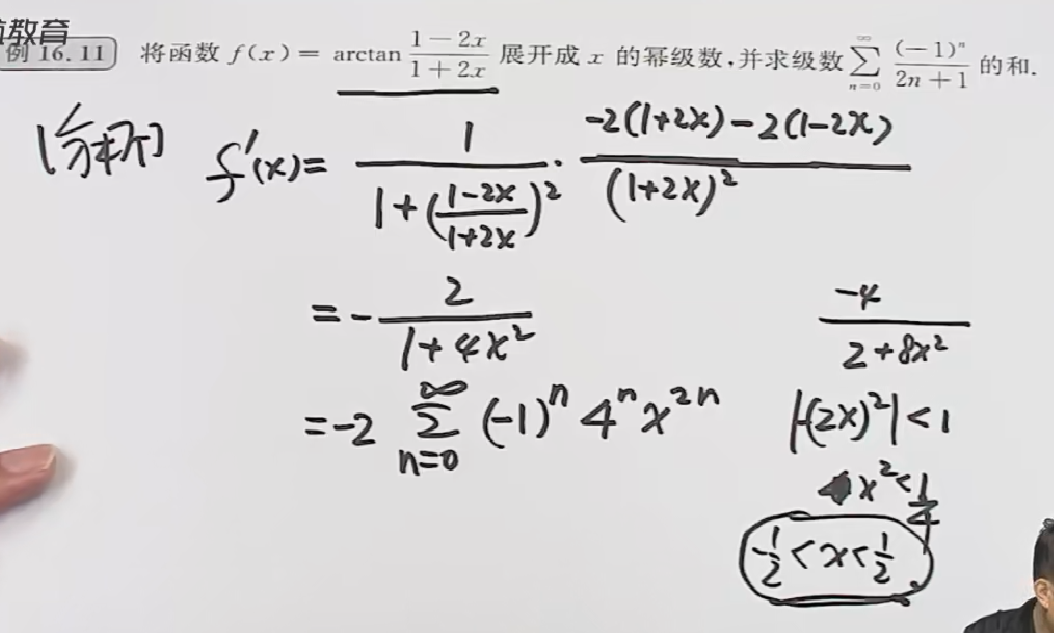 教育
例 16.11 将函数 f(x) = arctan \frac{1-2x}{1+2x} 展开成 x 的幂级数,并求级数 \sum_{n=0}^{\infty} \frac{(-1)^n}{2n+1} 的和.
[分析] f'(x) = \frac{1}{1+(\frac{1-2x}{1+2x})^2} · \frac{-2(1+2x)-2(1-2x)}{(1+2x)^2}
= -\frac{2}{1+4x^2} \frac{-4}{2+8x^2}
= -2 \sum_{n=0}^{\infty} (-1)^n 4^n x^{2n} |-(2x)^2| < 1
x^2 < \frac{1}{4}
-\frac{1}{2} < x < \frac{1}{2}